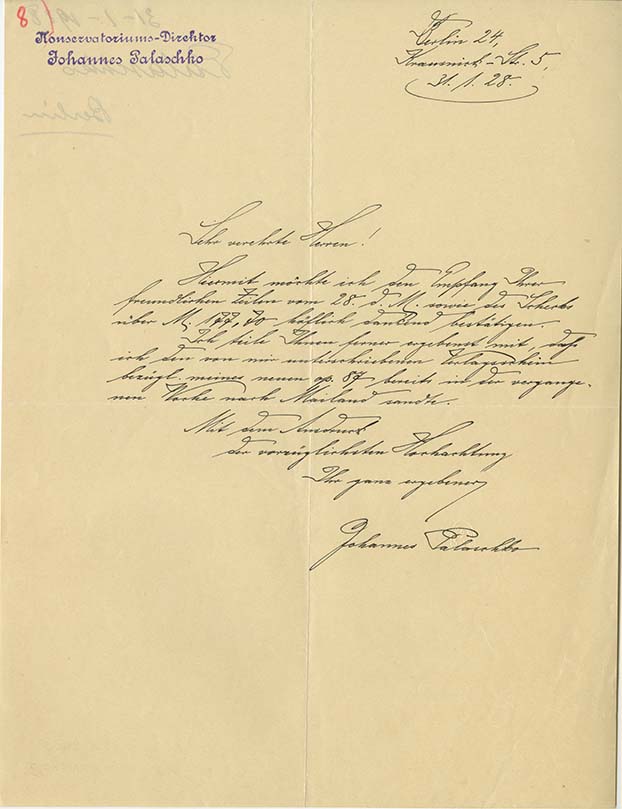 8
Konservatoriums-Direktor
Johannes Palaschko
Berlin
Berlin 24,
Krausnick-Str. 5,
31./1. 28.
Sehr verehrte Herren!
Hiermit möchte ich den Empfang Ihrer
freundlichen Zeilen vom 28. d. M. sowie des Schecks
über M. 177,70 höflich dankend bestätigen.
Ich teile Ihnen ferner ergebenst mit, daß
ich den von mir unterschriebenen Verlagsschein
bezügl. meines neuen op. 87 bereits in der vergange-
nen Woche nach Mailand sandte.
Mit dem Ausdruck
der vorzüglichsten Hochachtung
Ihr ganz ergebener
Johannes Palaschko